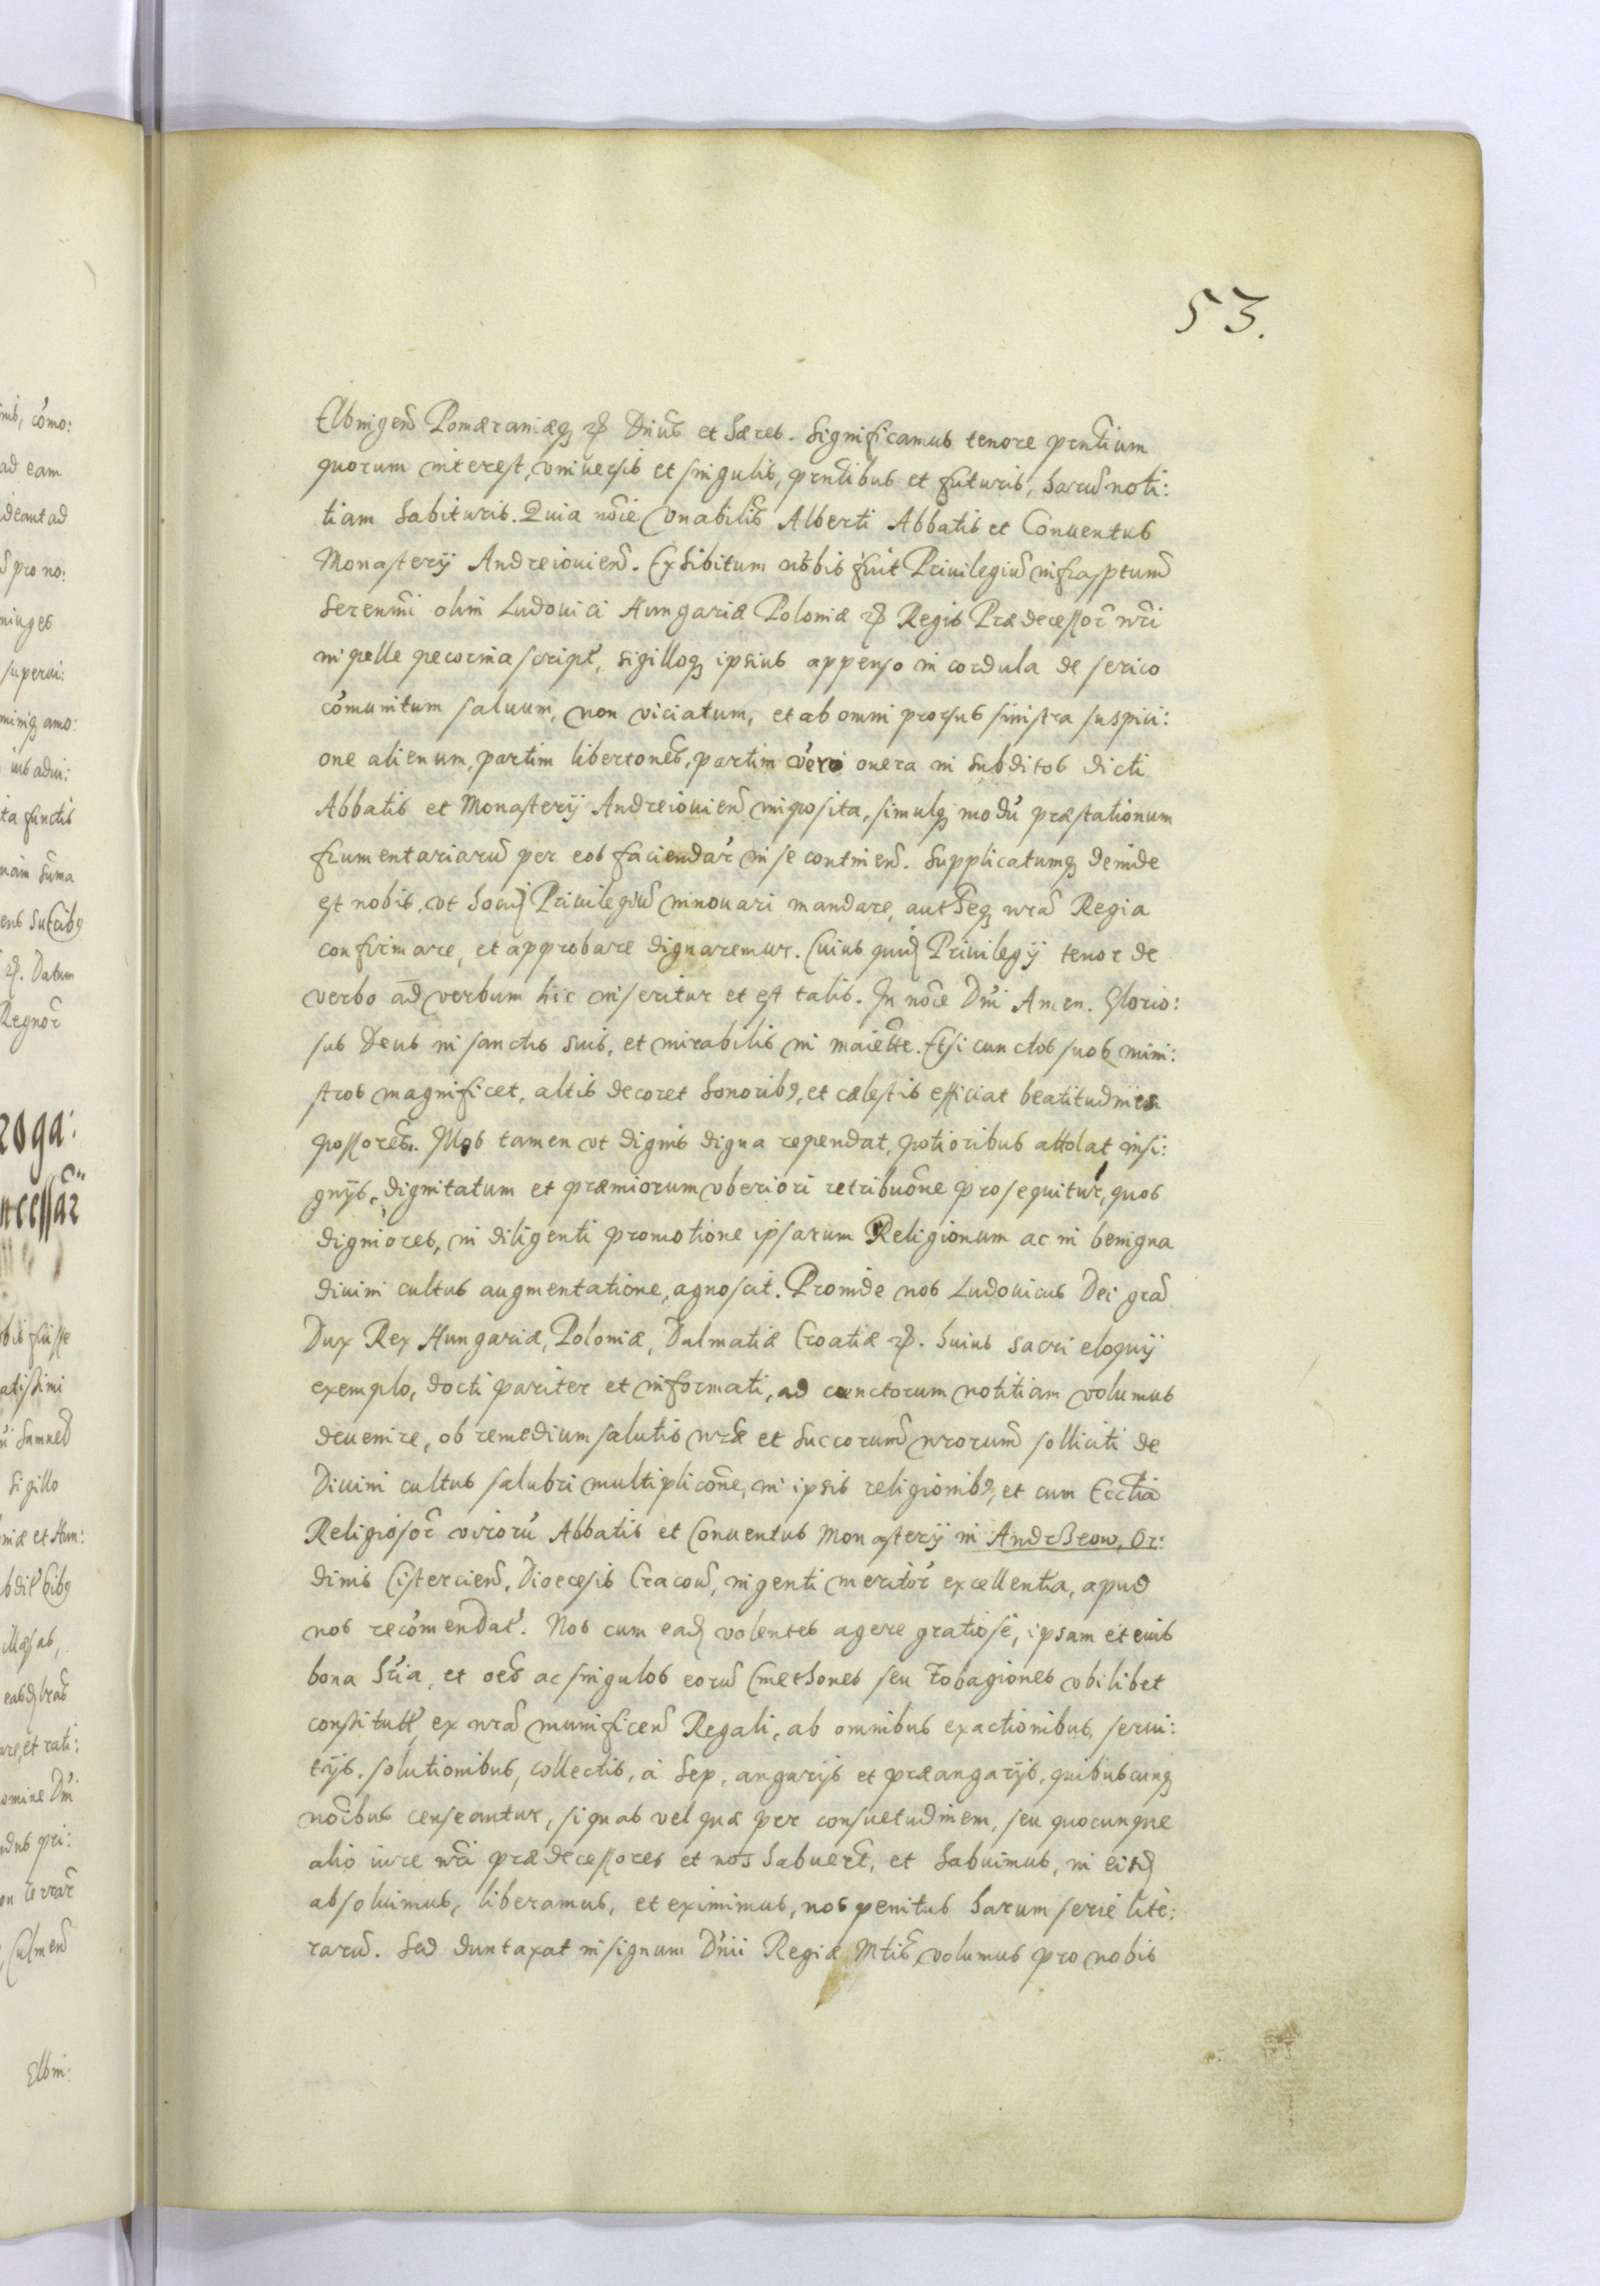 53.
Elbingen̄ Pomæraniæq₃ ꝛc̃ Dnus et Hæres. Significamus tenore prntium
quorum interest, vniuersis et singulis, prntibus et futuris, harū noti:
tiam habituris. Quia noie Vnabilis Alberti Abbatis et Conuentus
Monasterij Andreiouien̄. Exhibitum nobis fuit Priuilegiū infrasptum
Serenmi olim Ludouici Hungariæ Poloniæ ꝛc̃ Regis Prædecessor̃ nri
in pelle pecorina script̃, sigilloq₃ ipsius appenso in cordula de serico
cōmunitum saluum, non viciatum, et ab omni prorsus sinistra suspici:
one alienum, partim libertones, partim vero onera in subditos dicti
Abbatis et Monasterij Andreiouien̄ imposita, simulq₃ modū præstationum
frumentariarū per eos faciendar̃ in se continen̄. Supplicatumq₃ deinde
est nobis, vt hoc Priuilegiū innouari mandare, auttheq₃ nra Regia
confirmare, et approbare dignaremur. Cuius quid Priuilegij tenor de
verbo ad verbum hic inseritur et est talis. In noie Dni Amen. Glorio:
sus Deus in sanctis suis, et mirabilis in maiestte. Etsi cunctos suos mini:
stros magnificet, altis decoret honorib9, et cælestis efficiat beatitudinis
possores. Illos tamen vt dignis digna rependat, potioribus attolat insi:
gnijs, dignitatum et præmiorum vberiori retribuone prosequitur, quos
digniores, in diligenti promotione ipsarum Religionum ac in benigna
diuini cultus augmentatione, agnoscit. Proinde nos Ludouicus Dei gra
Dux Rex Hungariæ, Poloniæ, Dalmatiæ Croatiæ ꝛc̃. huius sacri eloquij
exemplo, docti pariter et informati, ad cunctorum notitiam volumus
deuenire, ob remedium salutis nræ et Succorum nrorum solliciti de
Diuini cultus salubri multiplicone, in ipsis religionib9, et cum Ecctia
Religiosor̃ virorū Abbatis et Conuentus Monasterij in Andrzeow, Or:
dinis Cistercien̄, Dioecesis Cracou, ingenti meritor̃ excellentia, apud
nos recōmendat̃. Nos cum ead volentes agere gratiose, ipsam et eius
bona hria, et oes ac singulos eorū Cmethones seu Iobagiones vbilibet
constitutt̃ ex nra munificen̄ Regali, ab omnibus exactionibus, serui:
tijs, solutionibus, collectis, à Sep, angarijs et præangarijs, quibuscunq₃
noibus censeantur, si quas vel quæ per consuetudinem, seu quocunque
alio iure nri prædecessores et nos habuert, et habuimus, in eisd
absoluimus, liberamus, et eximimus, nos penitus harum serie lite:
rarū. Sed duntaxat in signum Dnii Regiæ Mtis volumus pro nobis